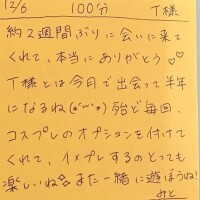 12/6 100分 T様
約2週間ぶりに会いに来て
くれて、本当にありがとう♡♡
T様とは今月で出会って半年
になるね(*´꒳`*)殆ど毎回、
コスプレのオプションを付けて
くれて、イメプレするのとっても
楽しいね♪また一緒に遊ぼうね!
みと